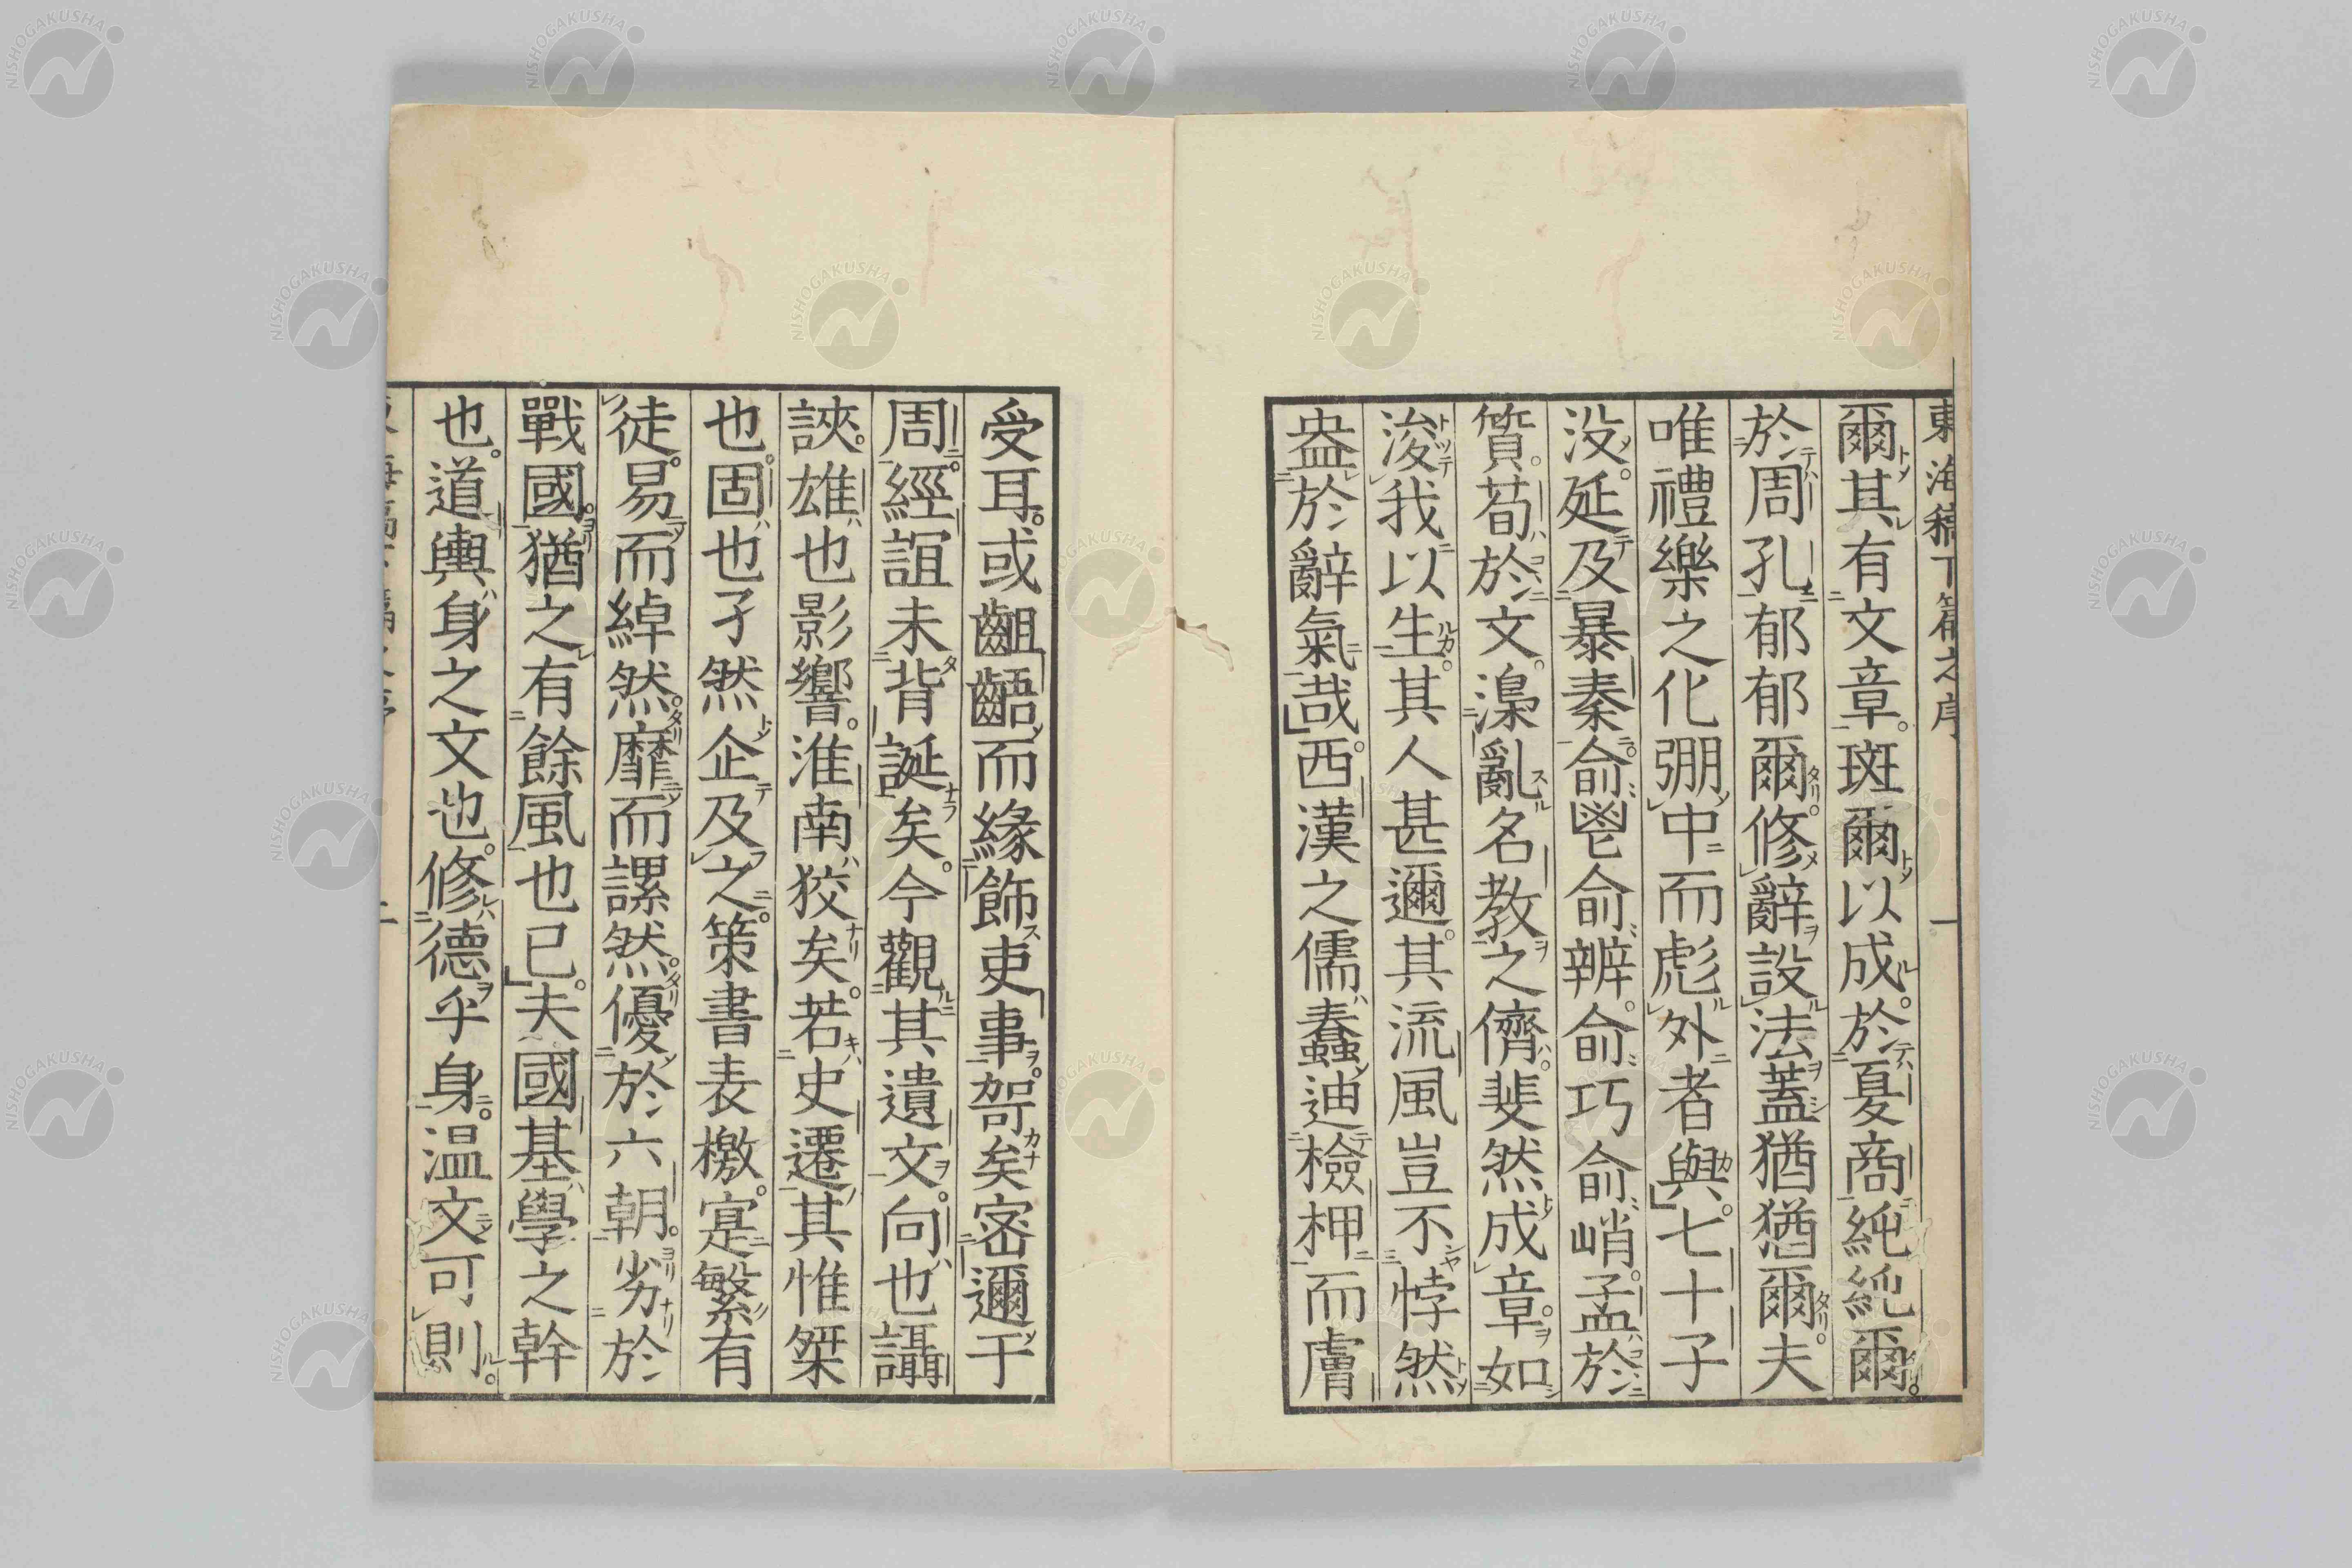 東海稿下篇之序 一
爾其有文章斑爾以成於夏商純純爾
於周孔郁郁爾修辭設法蓋猶猶爾夫
唯禮樂之化弸中而彪外者與七十子
没延及暴秦俞鬯俞辨俞巧俞峭孟於
質荀於文澡亂名教之儕斐然成章如
浚我以生其人甚邇其流風豈不悖然
盎於辭氣哉西漢之儒蠢迪檢柙而膚
受耳或齟齬而緣飾吏事哿矣密邇于
周經誼未背誕矣今觀其遺文向也讘
誺雄也影響淮南狡矣若史遷其惟桀
也固也孑然企及之策書表檄寔繁有
徒易而綽然靡而謖然優於六朝劣於
戰國猶之有餘風也已夫國基學之幹
也道輿身之文也修德乎身温文可則
二
NISHOGAKUSHA